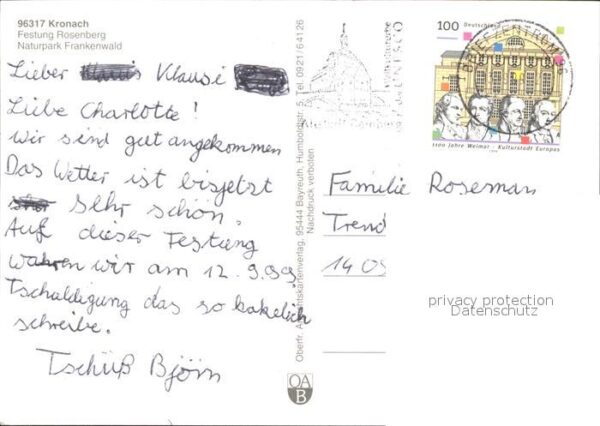 96317 Kronach
Festung Rosenberg
Naturpark Frankenwald
Lieber Klausi
Liebe Charlotte!
wir sind gut angekommen
Das Wetter ist bisjetzt
sehr schön.
Auf dieser Festung
wahren wir am 12.9.99.
Tschaldigung das so kakelich
schreibe.
Tschüß Björn
Oberfr. Ansichtskartenverlag, 95444 Bayreuth, Humboldtstr. 5, Tel. 0921/64126
Nachdruck verboten
OA
B
100 Deutschland
1100 Jahre Weimar Kulturstadt Europas
BRIEFZENTRUM
Familie Roseman
Trend
1409
privacy protection
Datenschutz